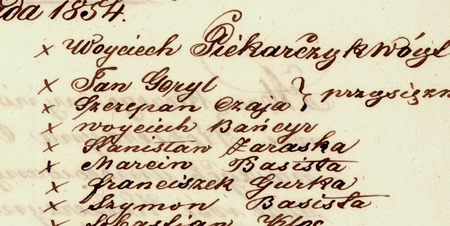 1854.
x Woyciech Piekarczyk wóyt
x Jan Goryl
x Szczepan Czaja } przysięzn
x woyciech Bańcyr
x Stanisław Zaraska
x Marcin Basista
x franciszek Gurka
x Szymon Basista
x Sebastian Kloc